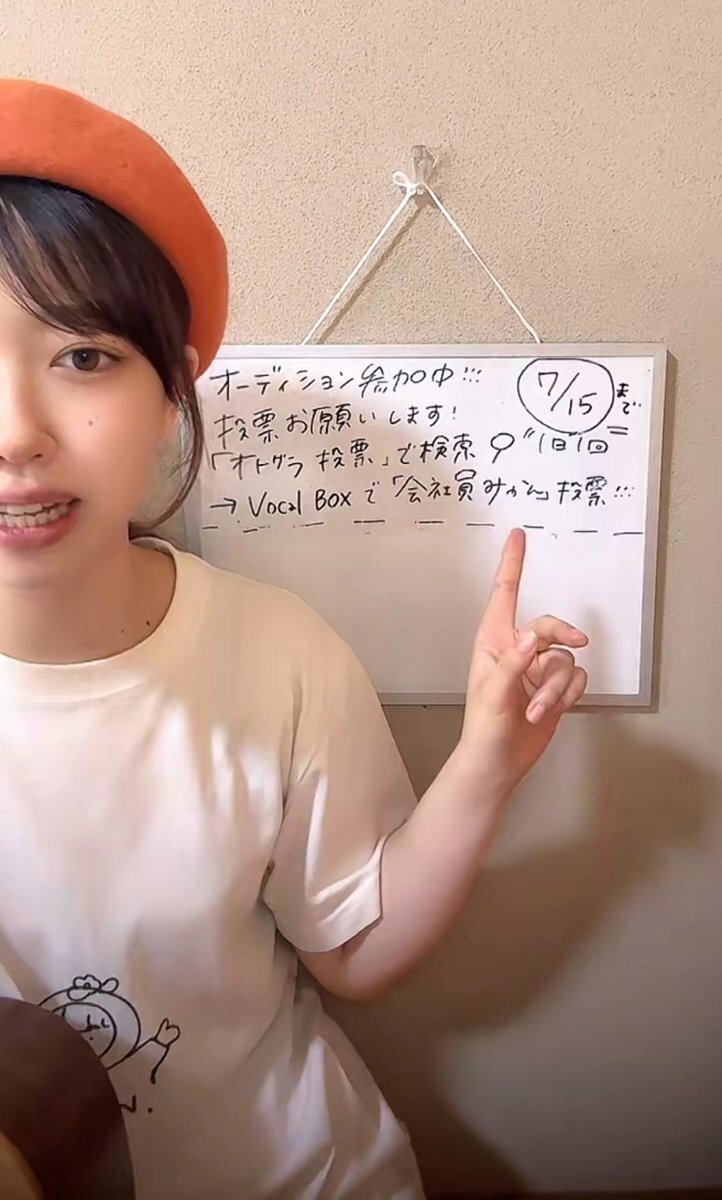 オーディション参加中!!!
投票お願いします!
7/15まで
「オトグラ 投票」で検索 "1日1回"
→ Vocal Boxで「会社員みかん」投票!!!